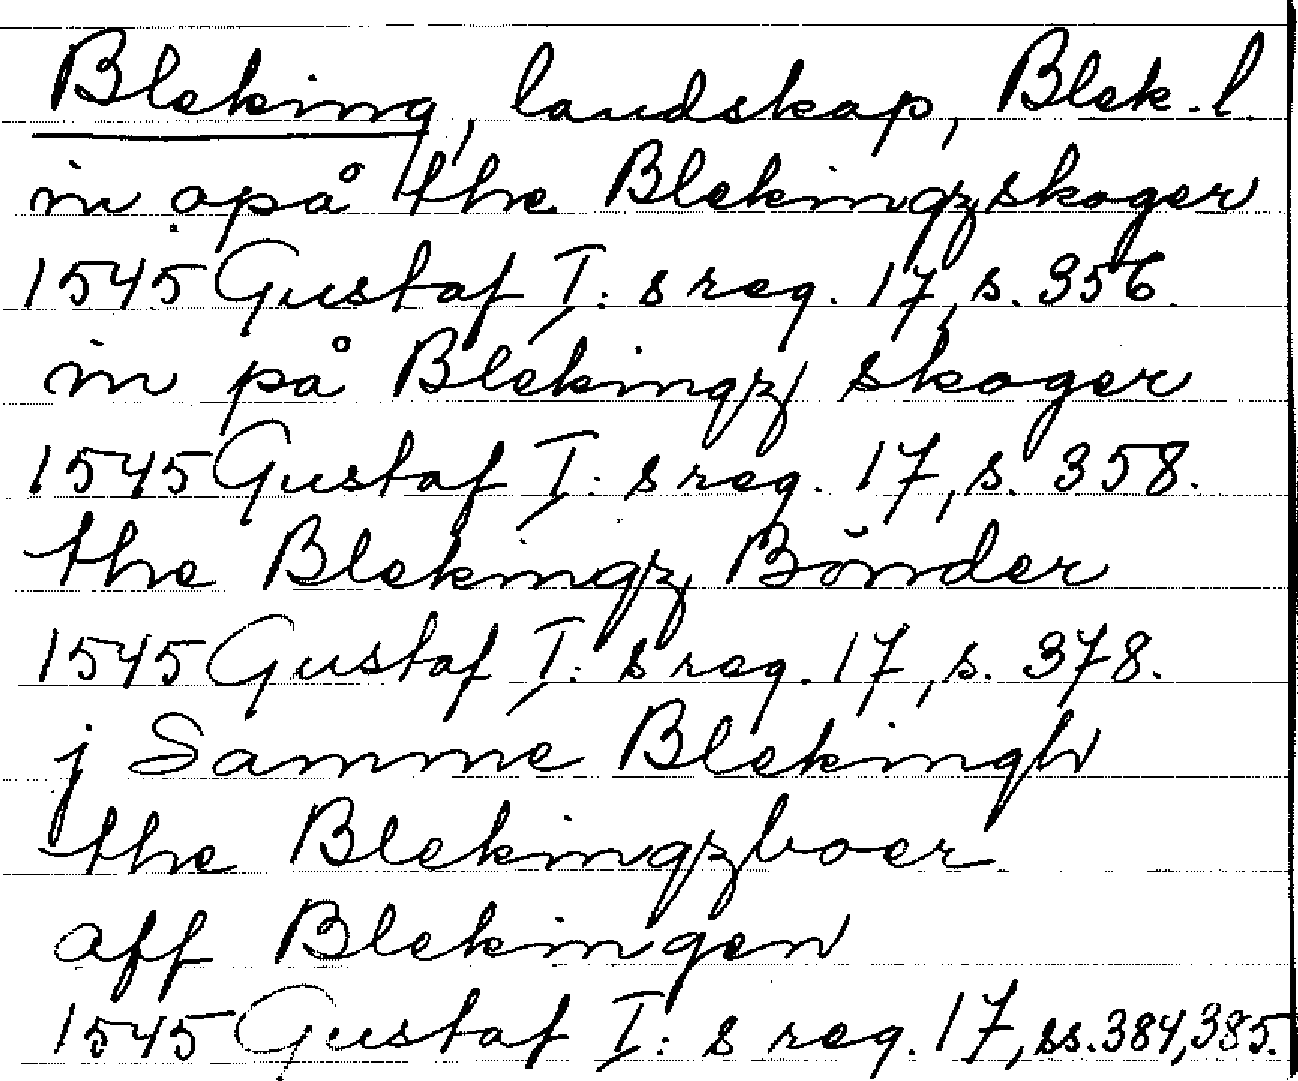 Bleking, landskap, Blek. l.
in opå the Blekingzskoger
1545 Gustaf I: s reg. 17, s. 356.
in på Blekingz skoger
1545 Gustaf I: s reg. 17, s. 358.
the Blekingz Bönder
1545 Gustaf I: s reg. 17, s. 378.
j Samme Blekingh
the Blekingzboer
aff Blekingen
1545 Gustaf I: s reg. 17, ss. 384, 385.